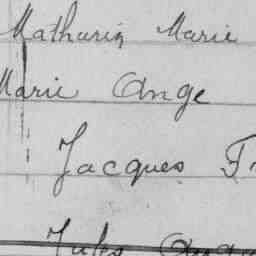 Mathurin Marie
Marie Ange
Jacques
Jules